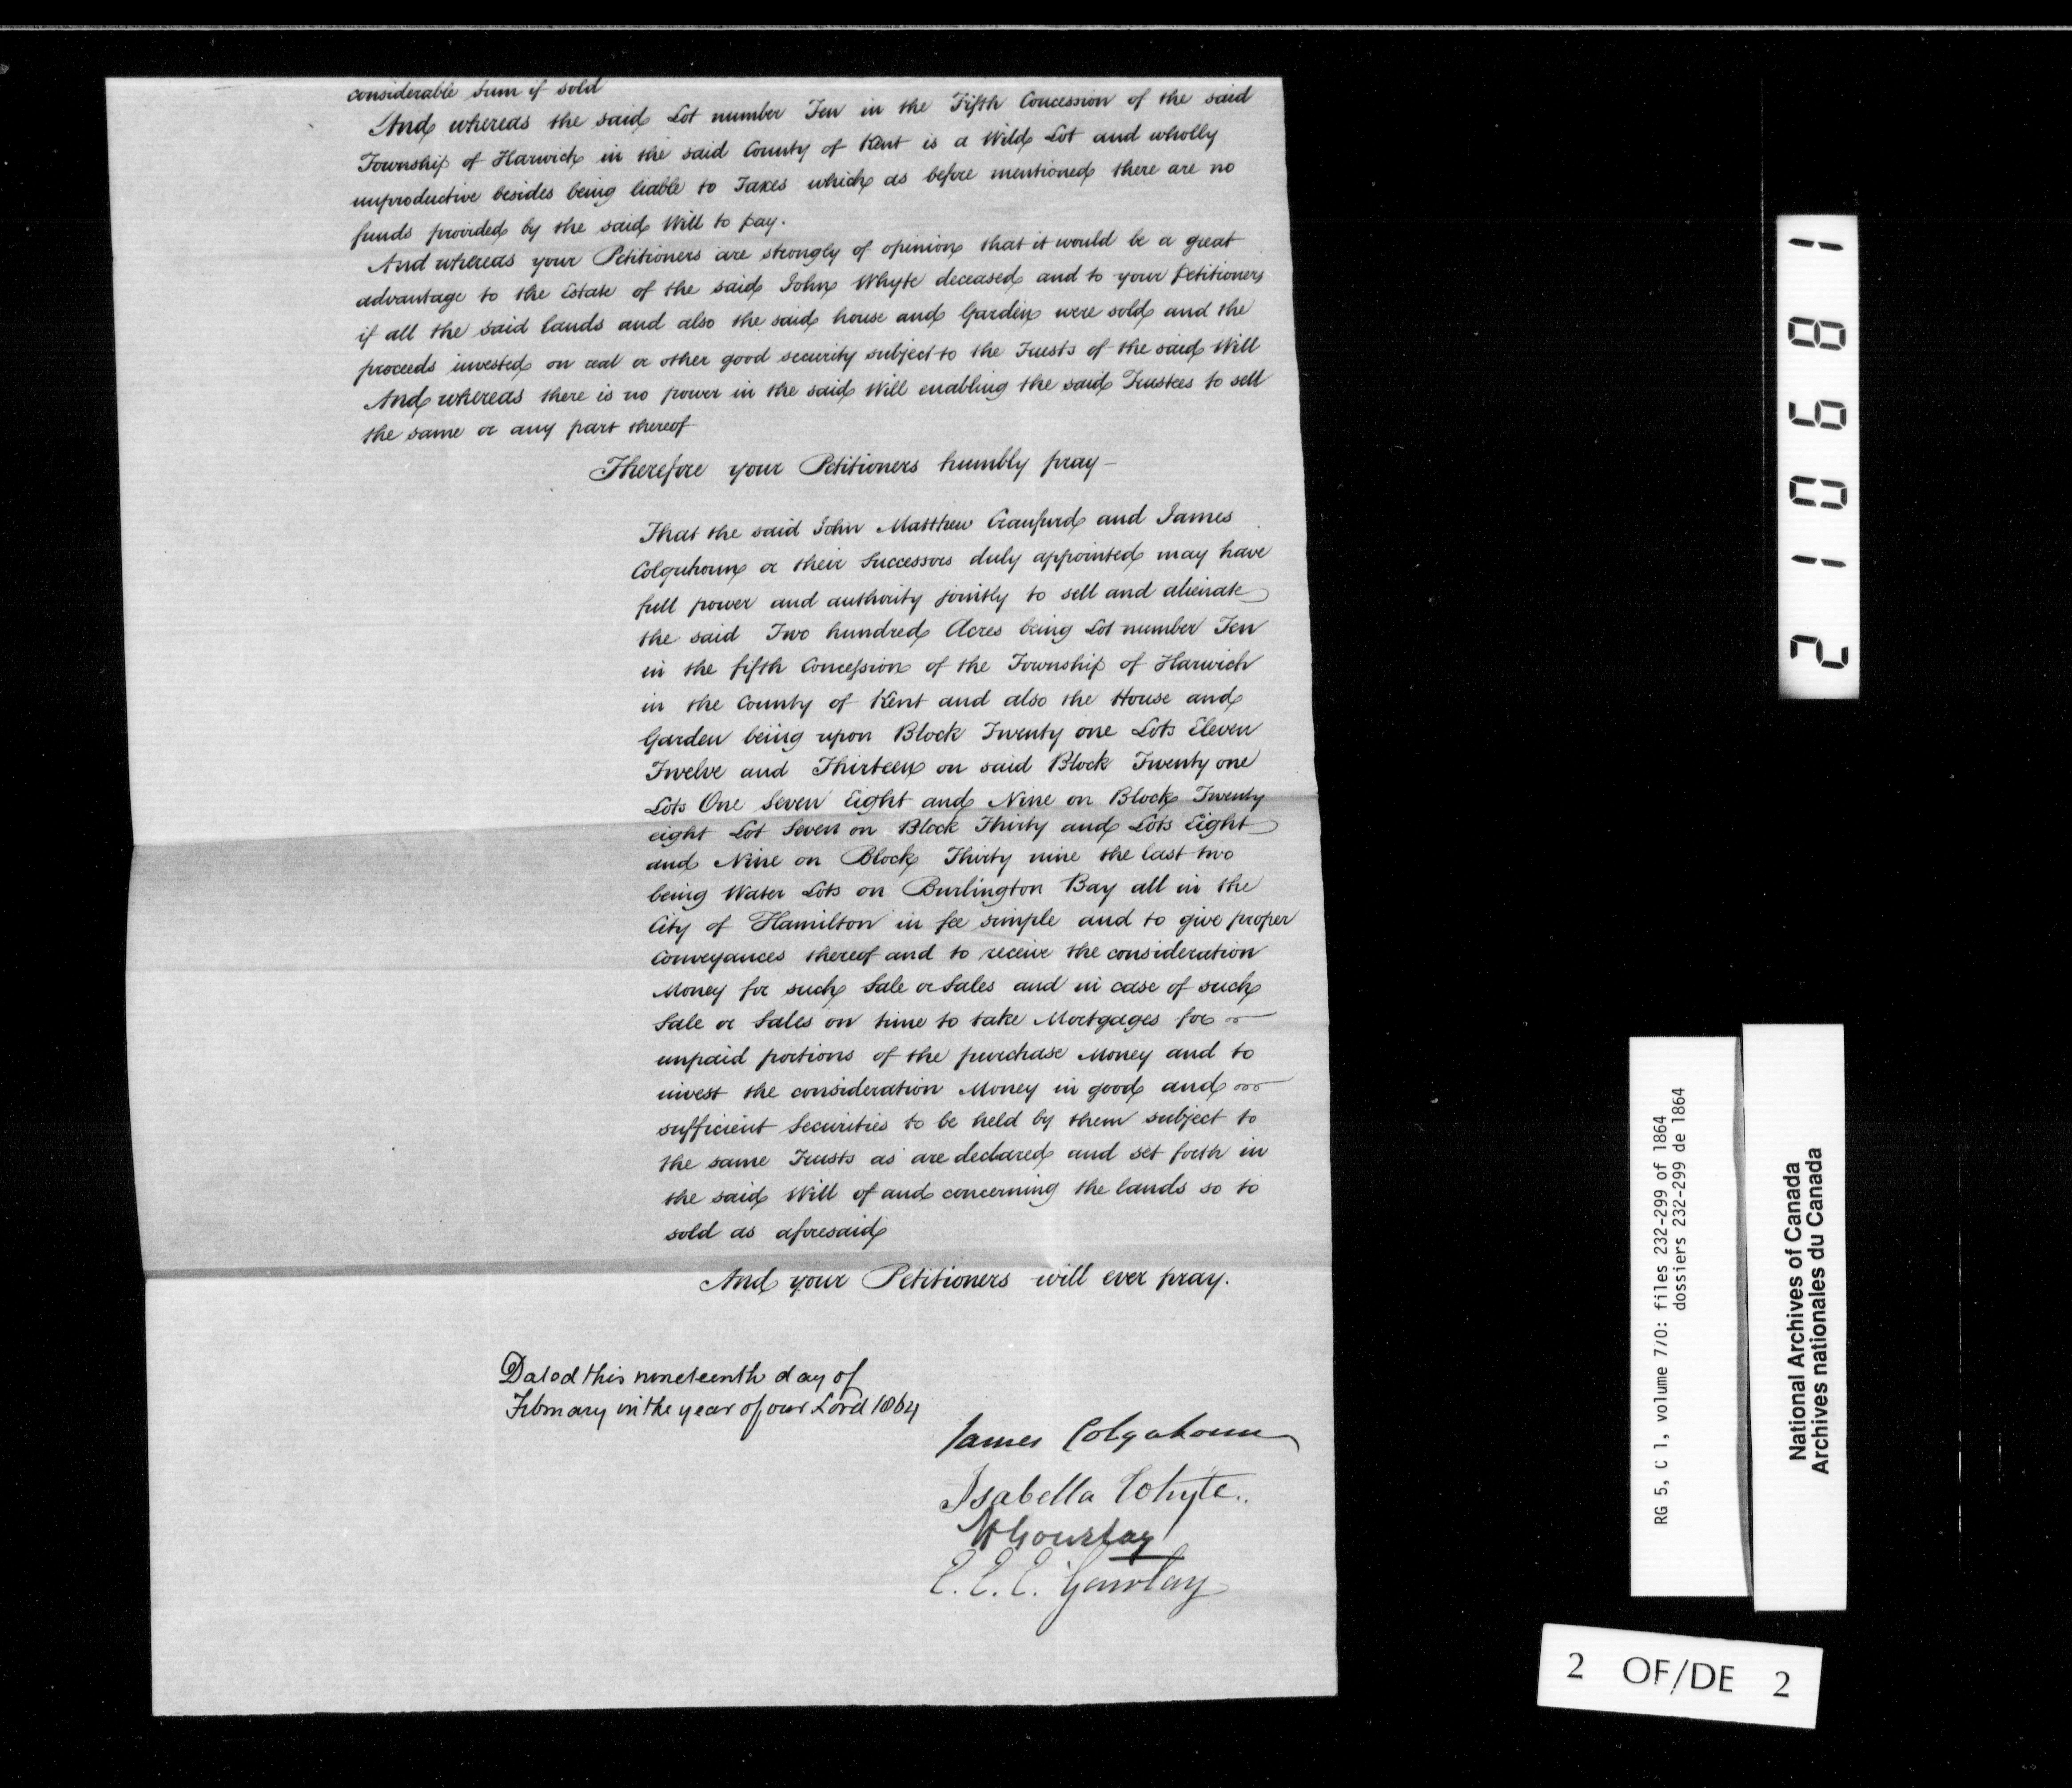 considerable Sum if sold
And whereas the said Lot number Ten in the Fifth Concession of the said
Township of Harwich in the said County of Kent is a Wild Lot and wholly
unproductive besides being liable to Taxes which as before mentioned there are no
funds provided by the said Will to pay.
And whereas your Petitioners are strongly of opinion that it would be a great
advantage to the Estate of the said John Whyte deceased and to your petitioners
if all the said lands and also the said house and Garden were sold and the
proceeds invested on real or other good security subject to the Trusts of the said Will
And whereas there is no power in the said Will enabling the said Trustees to sell
the same or any part thereof
Therefore your Petitioners humbly pray—
That the said John Matthew Craufurd and James
Colquhoun or their Successors duly appointed may have
full power and authority jointly to sell and alienate
the said Two hundred Acres being Lot number Ten
in the fifth Concession of the Township of Harwich
in the County of Kent and also the House and
Garden being upon Block Twenty one Lots Eleven
Twelve and Thirteen on said Block Twenty one
Lots One Seven Eight and Nine on Block Twenty
eight Lot Seven on Block Thirty and Lots Eight
and Nine on Block Thirty nine the last two
being Water Lots on Burlington Bay all in the
City of Hamilton in fee simple and to give proper
Conveyances thereof and to receive the consideration
Money for such Sale or Sales and in case of such
Sale or Sales on time to take Mortgages for
unpaid portions of the purchase Money and to
invest the consideration Money in good and
sufficient Securities to be held by them subject to
the same Trusts as are declared and set forth in
the said Will of and concerning the lands so to
sold as aforesaid
And your Petitioners will ever pray.
Dated this nineteenth day of
February in the year of our Lord 1864
James Colquhoun
Isabella Whyte..
Gourlay
E. E. E. Gourlay
210681
RG 5, C 1, volume 7/0: files 232-299 of 1864
dossiers 232-299 de 1864
National Archives of Canada
Archives nationales du Canada
2 OF/DE 2